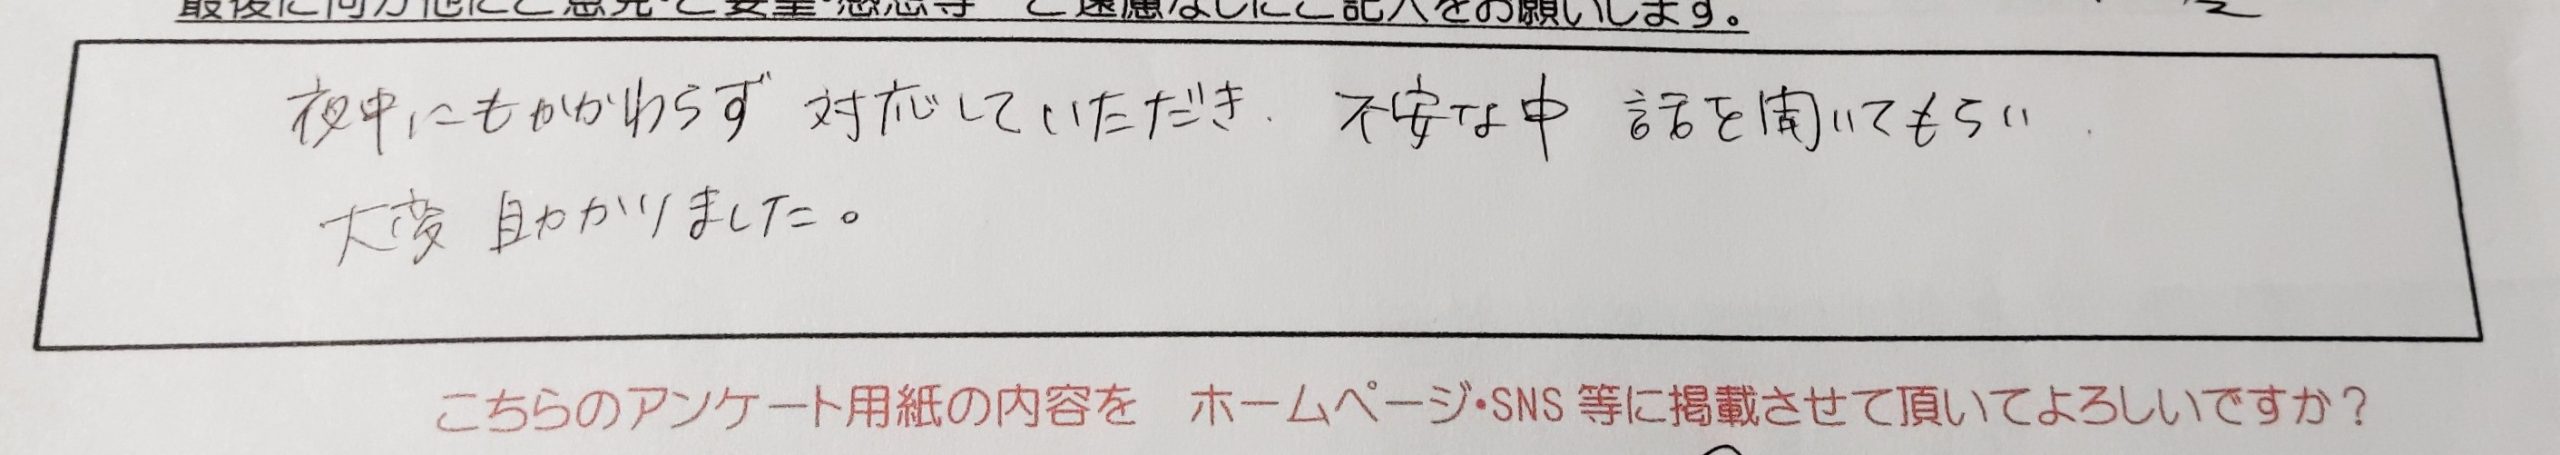 最後に何か他にご意見・ご要望・感想等　ご遠慮なしにご記入をお願いします。
夜中にもかかわらず 対応していただき、不安な中 話を聞いてもらい
大変 助かりました。
こちらのアンケート用紙の内容を　ホームページ・SNS 等に掲載させて頂いてよろしいですか？